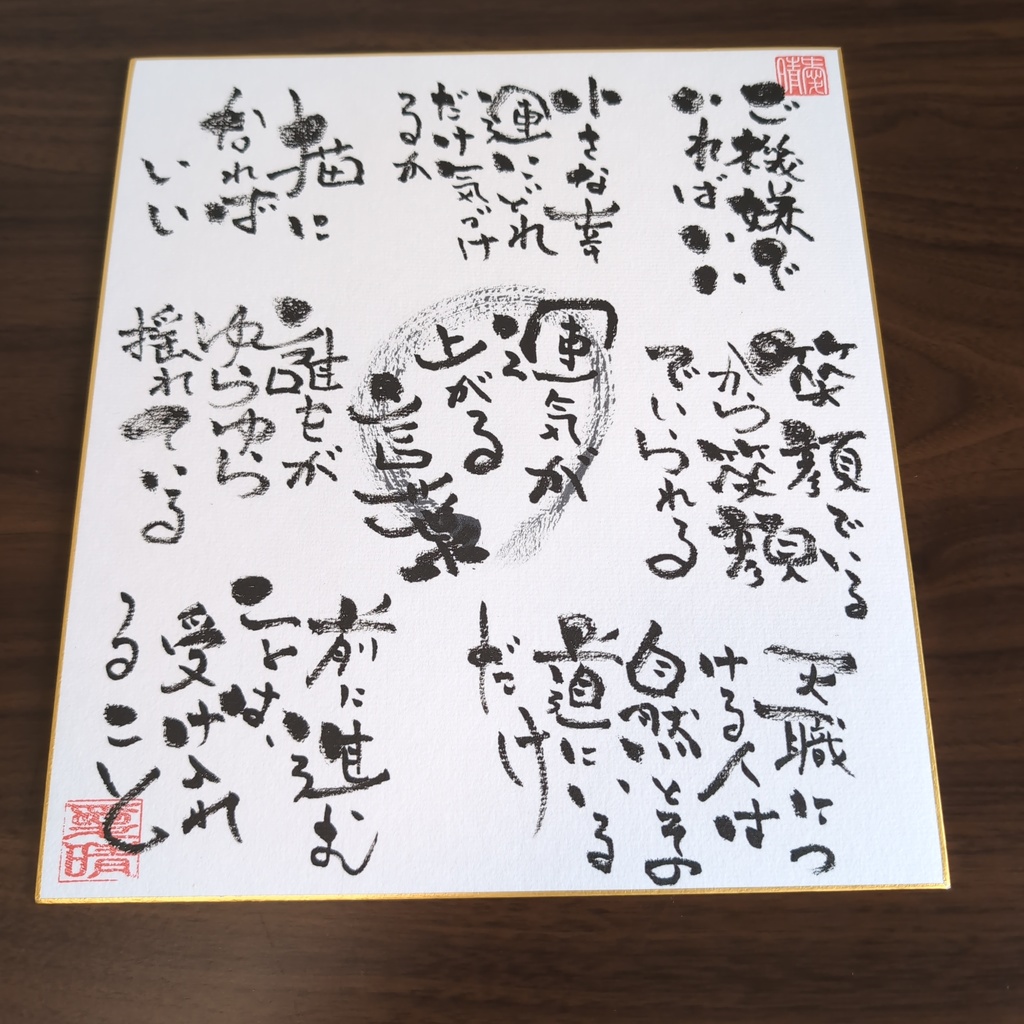 ご機嫌で
いればいい
小さな幸
運にどれ
だけ気づけ
るか
猫に
なれば
いい
笑顔でいる
から笑顔
でいられる
運気が
上がる
言葉
誰もが
ゆらゆら
揺れている
天職につ
ける人は
自然とその
道にいる
だけ
前に進む
ことは、
受け入れ
ること